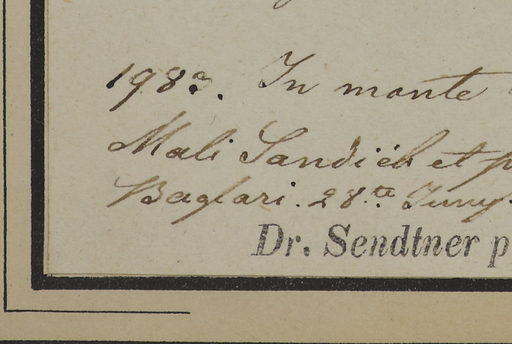 1983. In monte
Mali Sandiéh et p
Baglari. 28.te Juny.
Dr. Sendtner p